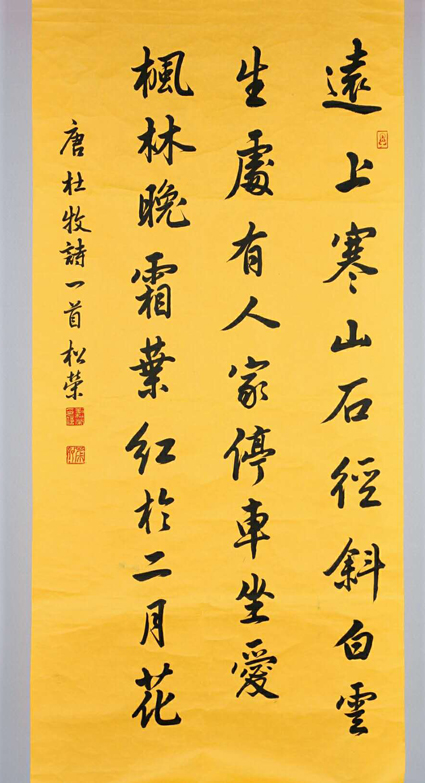 遠上寒山石徑斜白雲
生處有人家停車坐愛
楓林晚霜葉紅於二月花
唐杜牧詩一首松榮